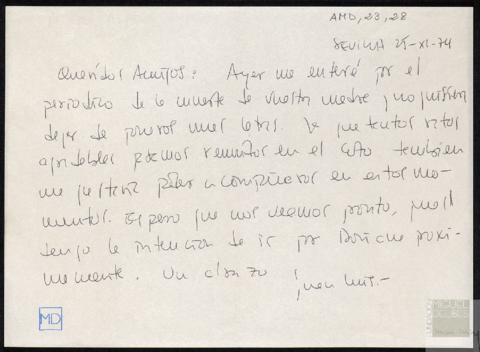 AMD, 23, 28
SEVILLA 25-XI-74
Queridos Amigos: Ayer me enteré por el
periodico de la muerte de vuestra madre y no quisiera
dejar de poneros unas letras. Ya que tantos ratos
agradables pasamos reunidos en el también
me gustaria poder acompañaros en estos mo-
mentos. Espero que nos veamos pronto, pues
tengo la intencion de ir por proxi-
mamente. Un abrazo Juan Luis.-
MD